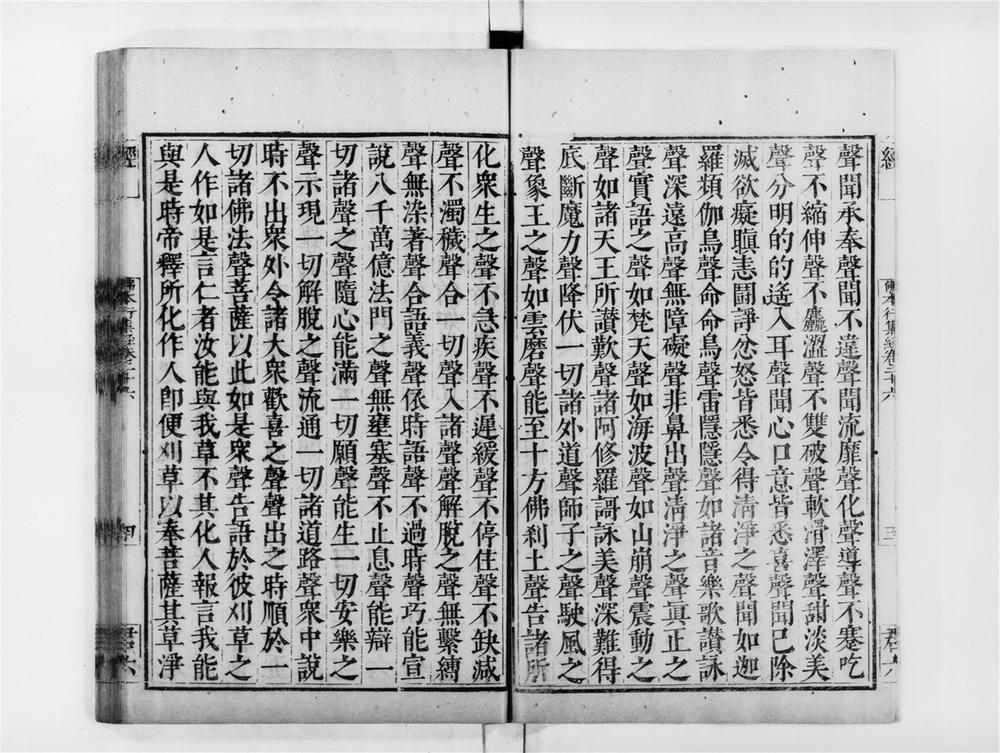 經
佛本行集經卷二十六
三
群六
聲聞承奉聲聞不違聲聞流靡聲化聲導聲不蹇吃
聲不縮伸聲不麤澀聲不雙破聲軟滑澤聲甜淡美
聲分明的的遙入耳聲聞心口意皆悉喜聲聞已除
滅欲癡瞋恚鬪諍忿怒皆悉令得清淨之聲聞如迦
羅頻伽鳥聲命命鳥聲雷隱隱聲如諸音樂歌讚詠
聲深遠高聲無障礙聲非鼻出聲清淨之聲眞正之
聲實語之聲如梵天聲如海波聲如山崩聲震動之
聲如諸天王所讚歎聲諸阿修羅謌詠美聲深難得
底斷魔力聲降伏一切諸外道聲師子之聲駛風之
聲象王之聲如雲磨聲能至十方佛刹土聲告諸所
化衆生之聲不急疾聲不遲緩聲不停住聲不缺減
聲不濁穢聲合一切聲入諸聲聲解脫之聲無繫縛
聲無染著聲合語義聲依時語聲不過時聲巧能宣
說八千萬億法門之聲無壅塞聲不止息聲能辯一
切諸聲之聲隨心能滿一切願聲能生一切安樂之
聲示現一切解脫之聲流通一切諸道路聲衆中說
時不出衆外令諸大衆歡喜之聲聲出之時順於一
切諸佛法聲菩薩以此如是衆聲告語於彼刈草之
人作如是言仁者汝能與我草不其化人報言我能
與是時帝釋所化作人卽便刈草以奉菩薩其草淨
經
佛本行集經卷二十六
四
群六